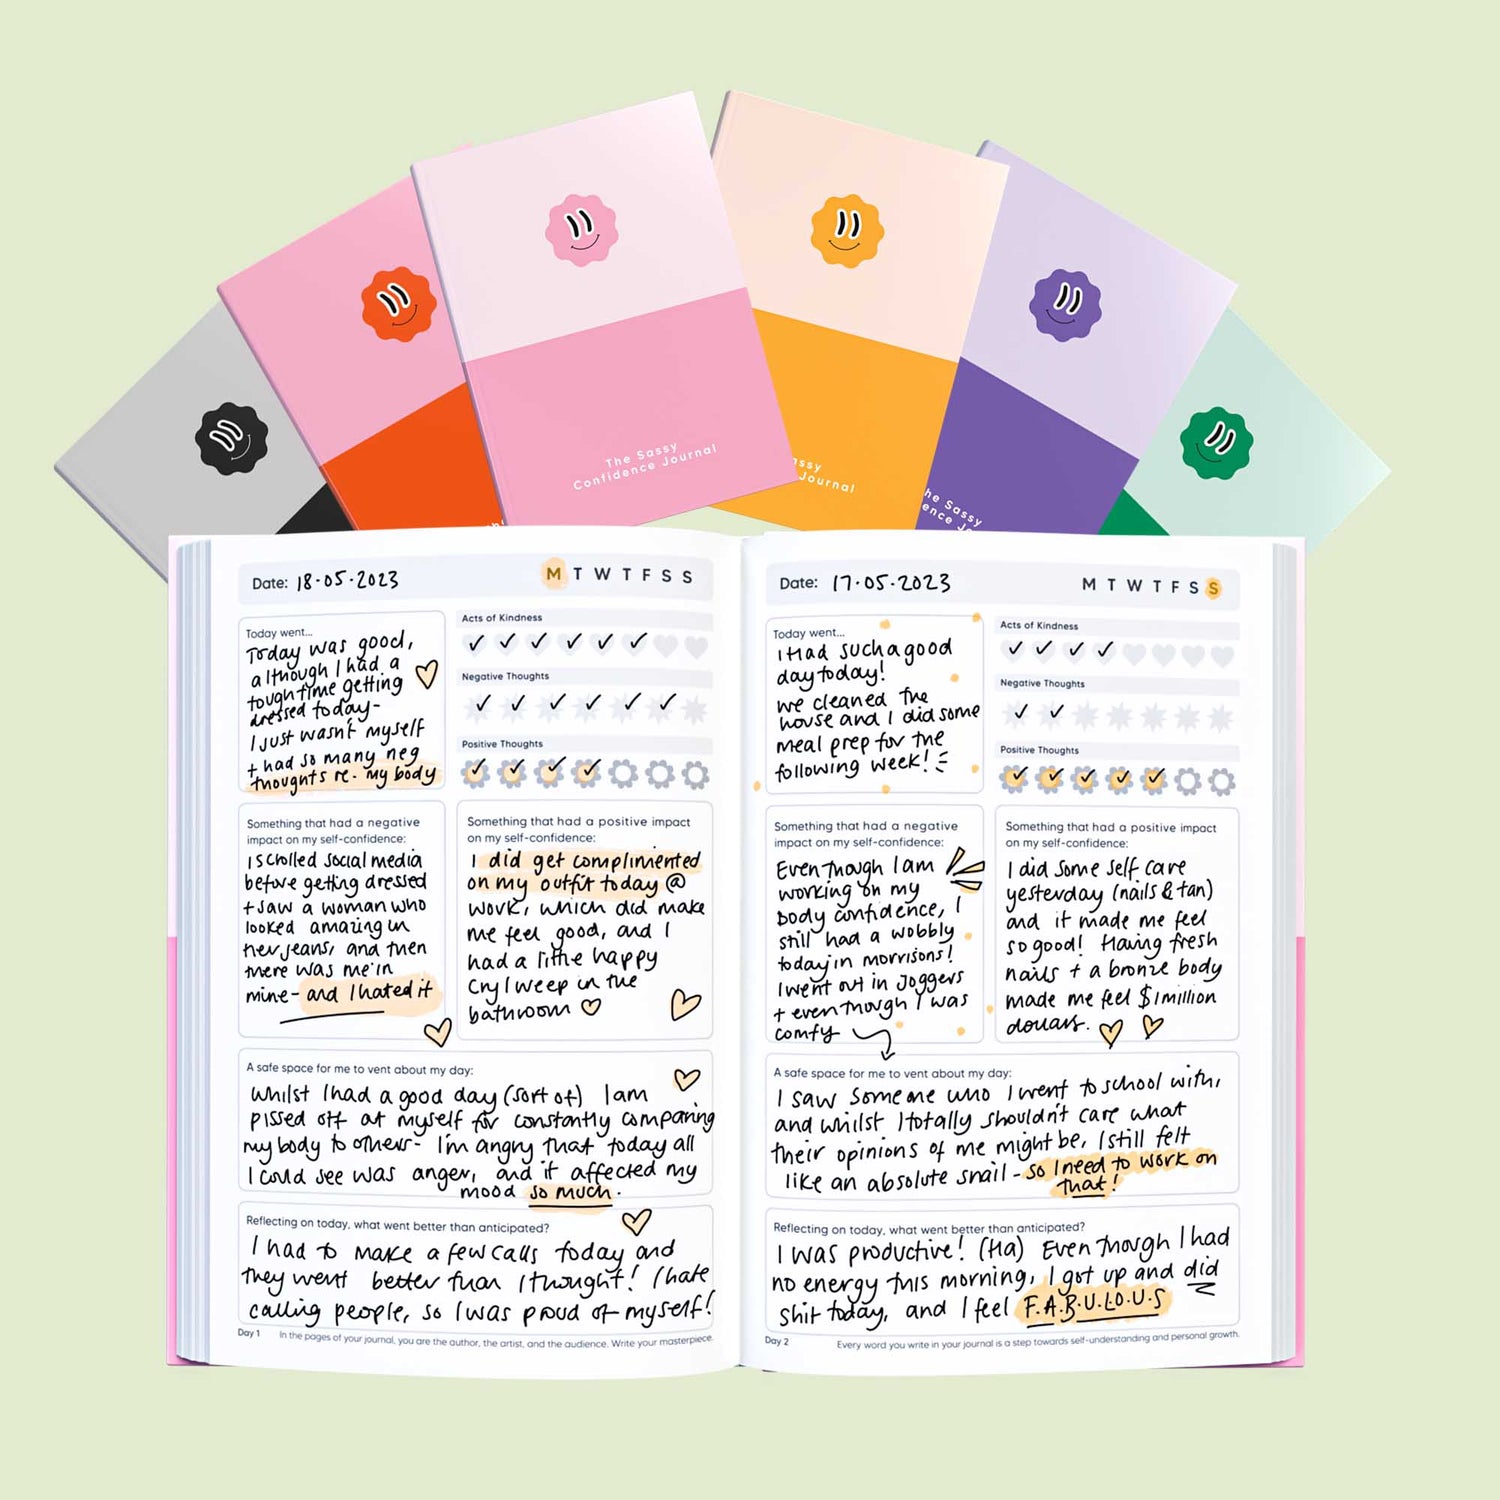 The Sassy
Confidence Journal
assy
Journal
he Sassy
ence Jo
Date: 18·05·2023
M T W T F S S
Today went...
Today was good,
although I had a
tough time getting
dressed today-
I just wasn't myself
+ had so many neg
thoughts re- my body
Acts of Kindness
Negative Thoughts
Positive Thoughts
Something that had a negative
impact on my self-confidence:
I scrolled social media
before getting dressed
+ saw a woman who
looked amazing in
her jeans, and then
there was me in
mine- and I hated it
Something that had a positive impact
on my self-confidence:
I did get complimented
on my outfit today @
work, which did make
me feel good, and I
had a little happy
cry/weep in the
bathroom
A safe space for me to vent about my day:
Whilst I had a good day (sort of) I am
pissed off at myself for constantly comparing
my body to others- I'm angry that today all
I could see was anger, and it affected my
mood so much.
Reflecting on today, what went better than anticipated?
I had to make a few calls today and
they went better than I thought! I hate
calling people, so I was proud of myself!
Day 1
In the pages of your journal, you are the author, the artist, and the audience. Write your masterpiece.
Date: 17·05·2023
M T W T F S S
Today went...
I Had such a good
day today!
we cleaned the
house and I did some
meal prep for the
following week!
Acts of Kindness
Negative Thoughts
Positive Thoughts
Something that had a negative
impact on my self-confidence:
Even though I am
working on my
body confidence, I
still had a wobbly
today in morrisons!
I went out in joggers
+ even though I was
comfy
Something that had a positive impact
on my self-confidence:
I did some self care
yesterday (nails & tan)
and it made me feel
so good! Having fresh
nails + a bronze body
made me feel $1million
dollars.
A safe space for me to vent about my day:
I saw someone who I went to school with,
and whilst I totally shouldn't care what
their opinions of me might be, I still felt
like an absolute snail - so I need to work on
that!
Reflecting on today, what went better than anticipated?
I was productive! (Ha) Even though I had
no energy this morning, I got up and did
shit today, and I feel F.A.B.U.L.O.U.S
Day 2
Every word you write in your journal is a step towards self-understanding and personal growth.